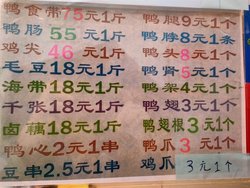 鸭食带75元1斤
鸭肠 55 元1斤
鸡尖 46 元1斤
毛豆18元1斤
海带18元1斤
千张18元1斤
卤藕18元1斤
鸭心2元1串
豆串2.5元1串
鸭腿9元1个
鸭脖8元1条
鸭头8元1个
鸭肾5元1个
鸭架4元1个
鸭翅3元1个
鸭翅根3元1个
鸭爪3元1个
鸡爪 3元1个